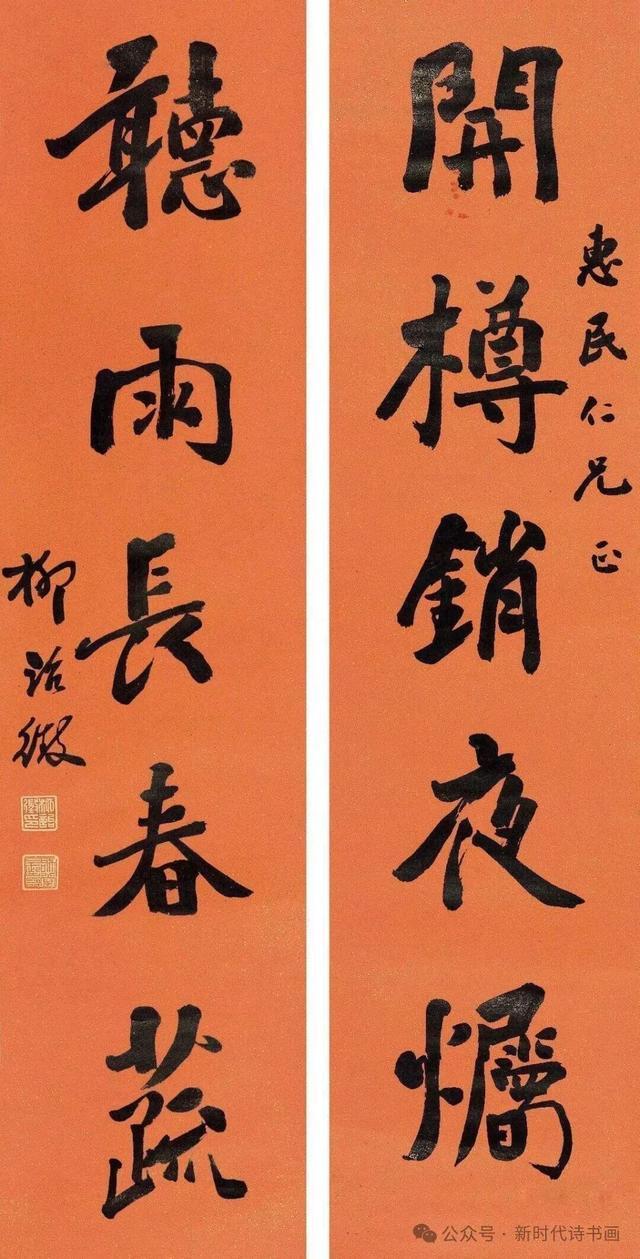 惠民仁兄正
開樽銷夜爥
聽雨長春蔬
柳詒徵
柳詒徵印
公众号·新时代诗书画